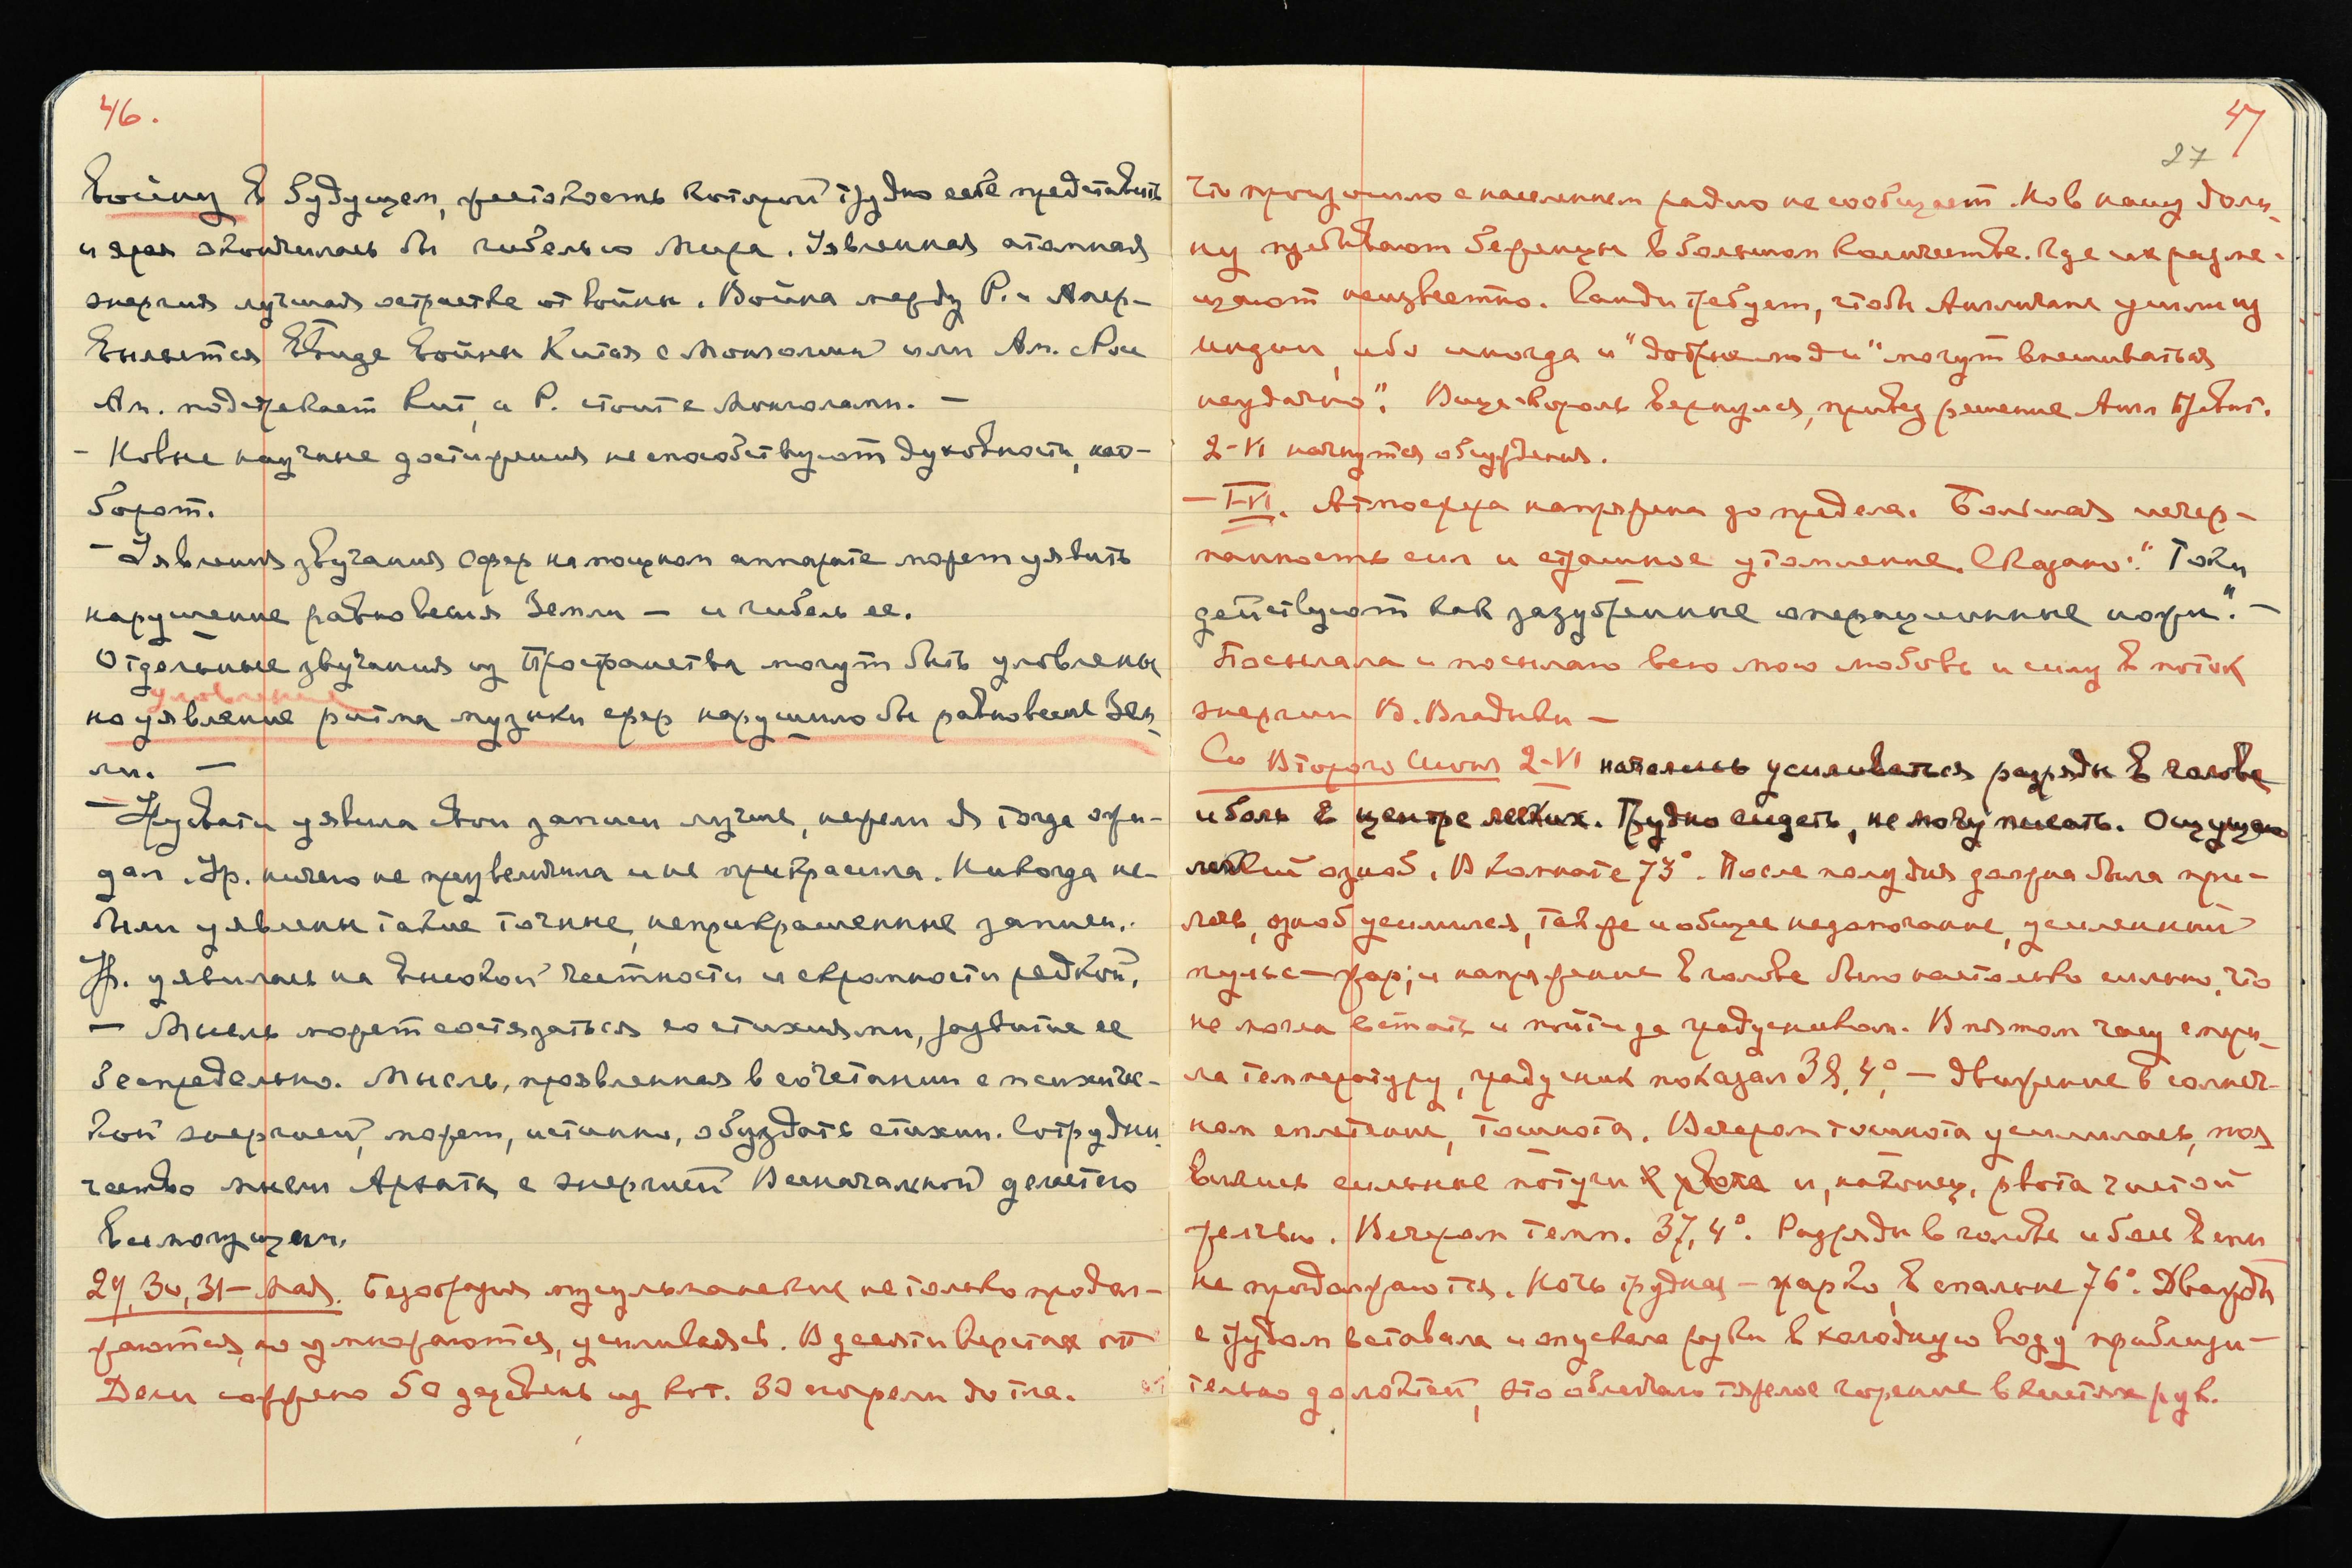 46.
войну в будущем, жестокость которой трудно себе представить
и яяя окончилась бы гибелью мира. Уявленная атомная
энергия лучшая острастка от войны. Война между Р. и Амер-
выльется в виде войны Китая с Монголией или Ам. с Рос
Ам. подстрекает Кит, а Р. стоит с Монголами. —
- Новые научные достижения не способствуют духовности, нао-
борот.
- Уявления звучания сфер на мощном аппарате может уявить
нарушение равновесия Земли — и гибель ее.
Отдельные звучания из Пространства могут быть уловлены
уловление
но уявление ритма музыки сфер нарушило бы равновесие Зем-
ли. —
- Урусвати уявила свои записи лучше, нежели Я тогда ожи-
дал. Ур. ничего не преувеличила и не прикрасила. Никогда не-
были уявлены такие точные, неприкрашенные записи.
Ур. уявилась на высокой честности и скромности редкой.
— Мысль может состязаться со стихиями, развитие ее
беспредельно. Мысль, проявленная в сочетании с психичес-
кой энергией, может, истинно, обуздать стихии. Сотрудни-
чество мысли Архата с энергией Всеначальной делает его
всемогущим.
29, 30, 31 — мая. Безобразия мусульманские не только продол-
жаются, но умножаются, усиливаясь. В десяти верстах от
Дели сожжено 50 деревень из кот. 30 сгорели до тла.
47
27
Что произошло с населением радио не сообщает. Но в нашу доли-
ну прибывают беженцы в большом количестве. Где их разме-
щают неизвестно. Ганди требует, чтобы Англичане ушли из
Индии, ибо иногда и "добрые люди" могут вмешиваться
неудачно". Вице-король вернулся, привез решение Англ Правит.
2-VI начнутся обсуждения.
— I-VI. Атмосфера напряжена до предела. Большая исчер-
панность сил и страшное утомление. Сказано: "Токи
действуют как зазубренные операционные ножи". —
Посылала и посылаю всю мою любовь и силу в поток
энергии В. Владыки —
Со Второго Июня 2-VI начались усиливаться разряды в голове
и боль в центре легких. Трудно сидеть, не могу писать. Ощущаю
легкий озноб. В комнате 73°. После полудня должна была при-
лечь, озноб усилился, также и общее недомогание, усиленный
пульс — жар; и напряжение в голове было настолько сильно, что
не могла встать и пойти за градусником. В пятом часу смери-
ла температуру, градусник показал 38,4°. — Движение в солнеч-
ном сплетении, тошнота. Вечером тошнота усилилась, поя
вились сильные потуги к рвоте и, наконец, рвота чистой
желчью. Вечером темп. 37,4°. Разряды в голове и боль в спи
не продолжаются. Ночь трудная — жарко, в спальне 76°. Дважды
с трудом вставала и опускала руки в холодную воду приблизи-
тельно до локтей, это облегчало тяжелое горение в кистях рук.